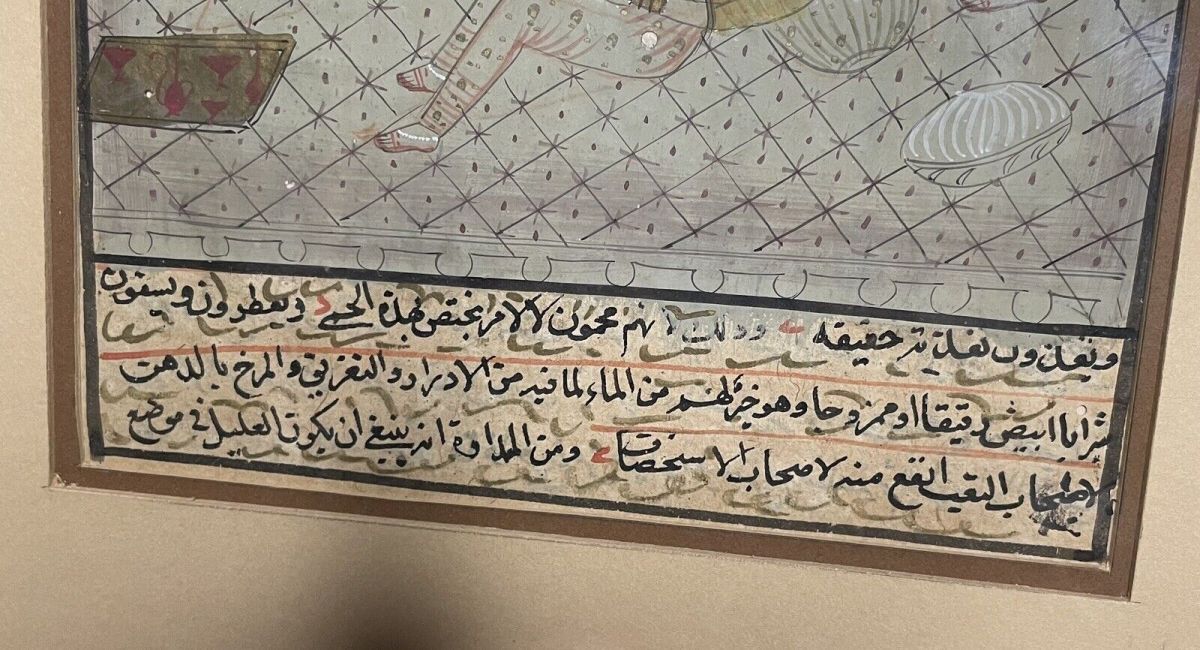 حقيقة وذلك لانهم محمومون لا لامر يختص بهذه الحمى ويعطرون ويسقون
شرابا ابيض رقيقا او ممزوجا وهو خير لهم من الماء لما فيه من الادرار والتعريق والمرخ بالدهن
لاصحاب التعب انفع منه لاصحاب الاستحصاف ومن المداواة انه ينبغي ان يكون العليل في موضع